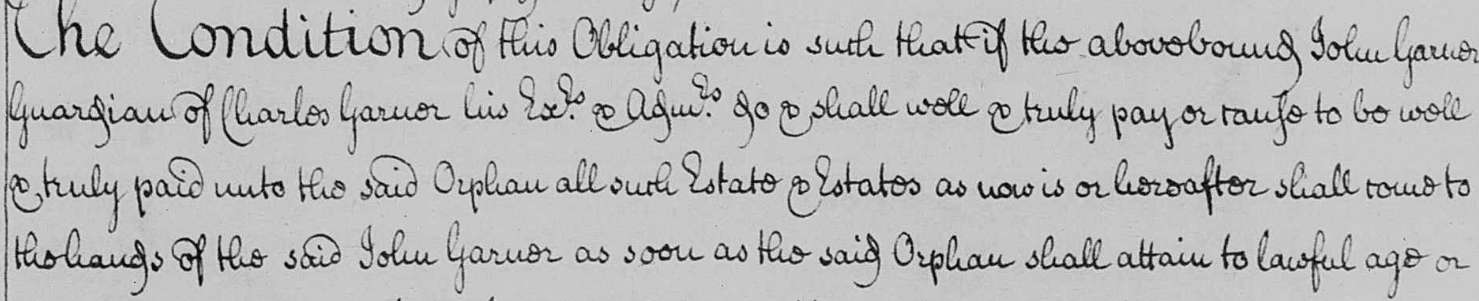 The Condition of this Obligation is such that if the abovebound John Garner
Guardian of Charles Garner his Exrs. & Admrs. do & shall well & truly pay or cause to be well
& truly paid unto the said Orphan all such Estate & Estates as now is or hereafter shall come to
the hands of the said John Garner as soon as the said Orphan shall attain to lawful age or